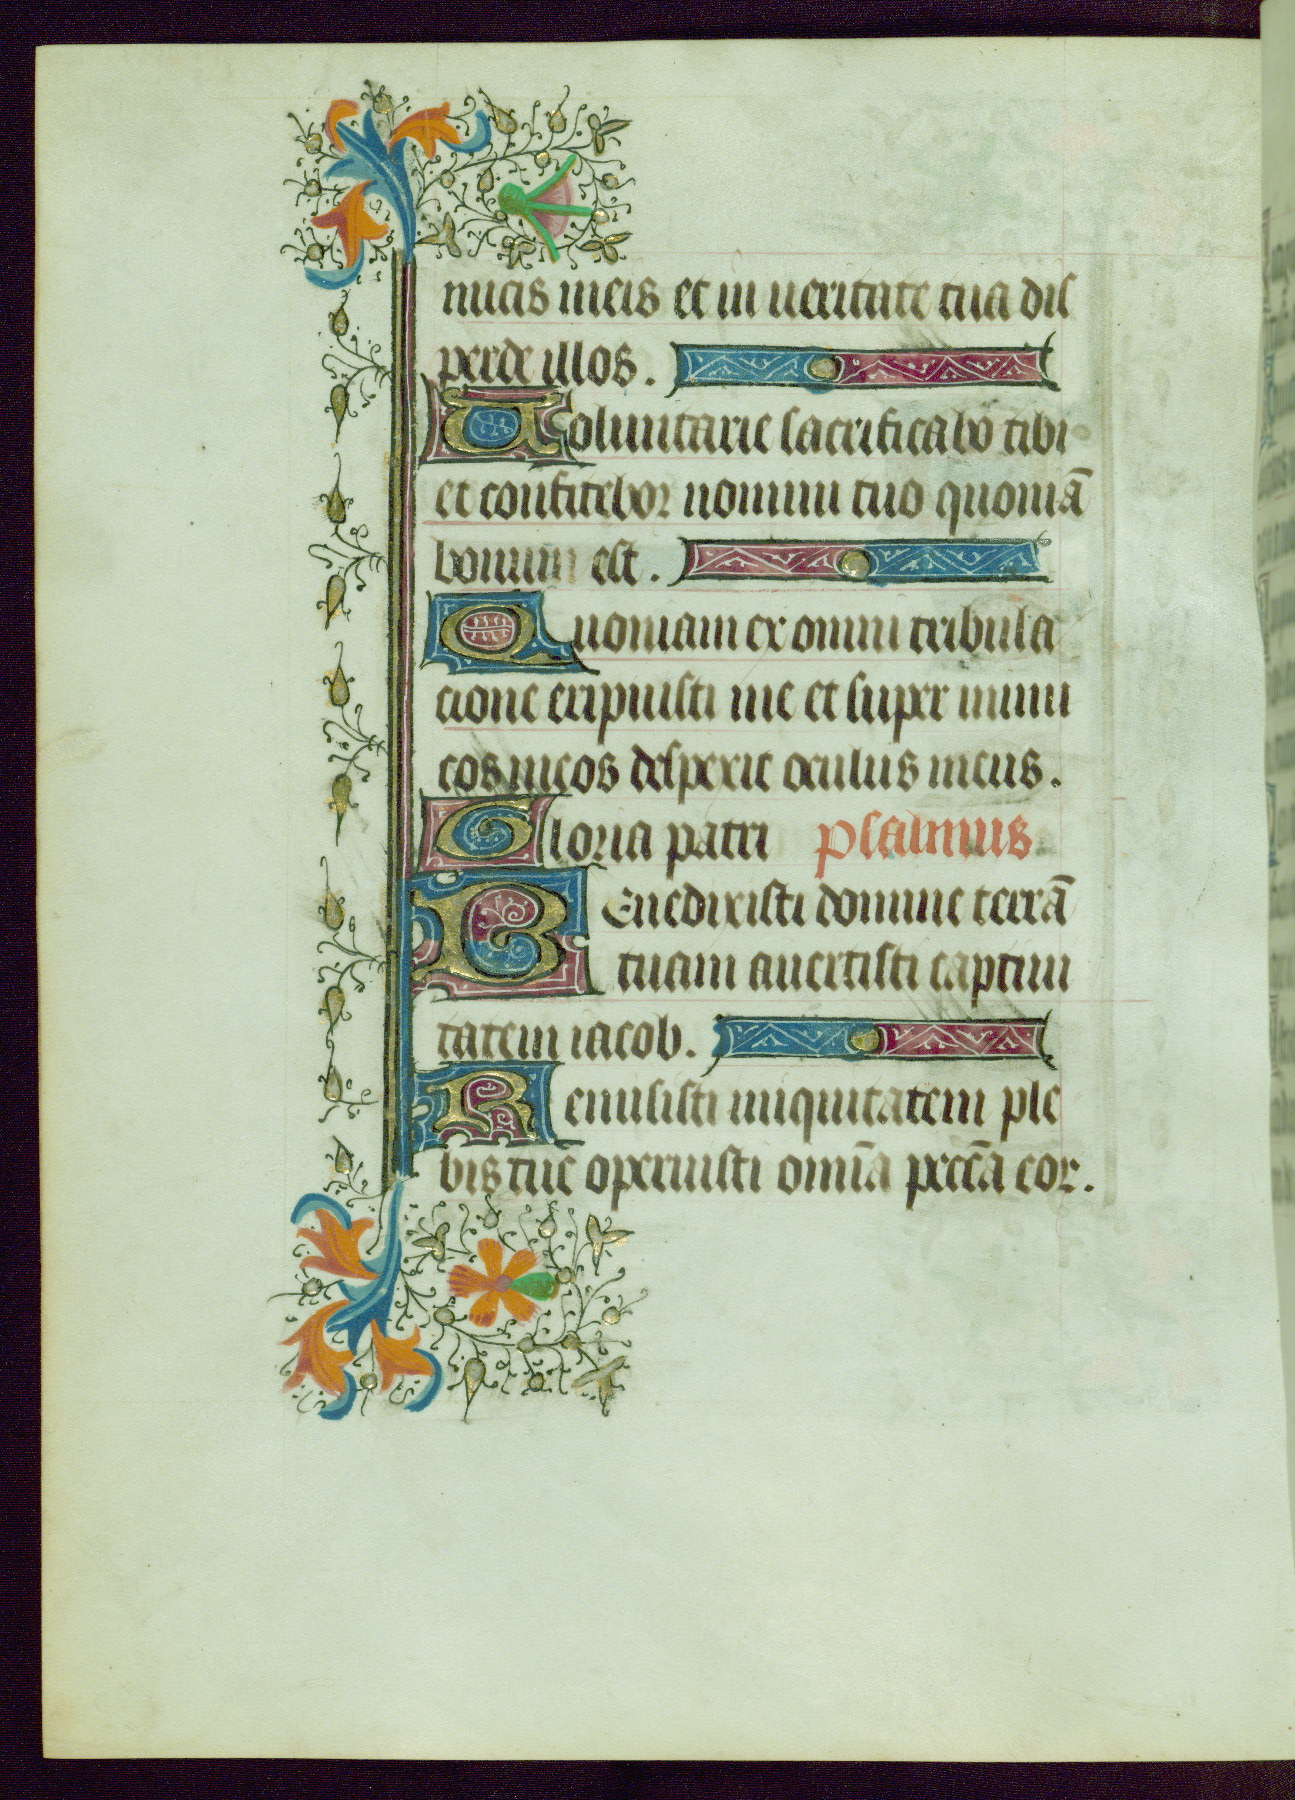 micis meis et in ueritate tua dis
perde illos.
Uoluntarie sacrificabo tibi
et confitebor nomini tuo quoniā
bonum est.
Quoniam ex omni tribula
cione eripuisti me et super inimi
cos meos despexit oculus meus.
Gloria patri psalmus
Benedixisti domine terrā
tuam auertisti captiui
tatem iacob.
Remisisti iniquitatem ple
bis tue operuisti om̄ia pecc̄a eor.